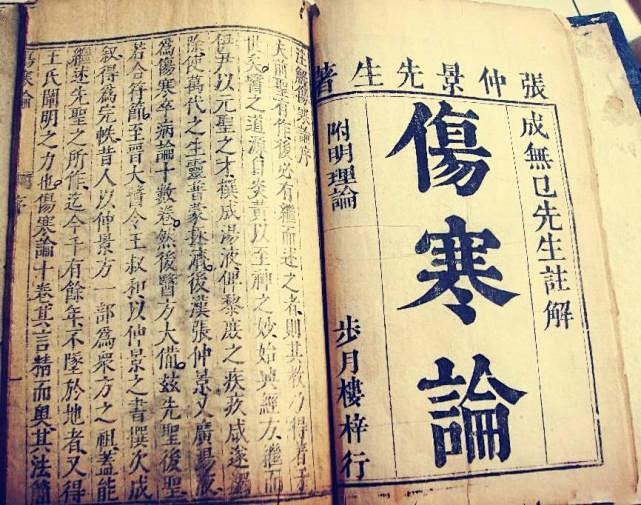 張仲景先生著
成無已先生註解
傷寒論
附明理論
步月樓梓行
注解傷寒論序
夫前聖有作後必有繼而述之者則其教乃得著于
世矣醫之道源自炎黃以至神之妙始興經方繼而
伊尹以元聖之才撰成湯液俾黎庶之疾疢咸遂蠲
除使萬代之生靈普蒙拯濟後漢張仲景又廣湯液
為傷寒卒病論十數卷然後醫方大備茲先聖後聖
若合符節至晉太醫令王叔和以仲景之書撰次成
敘得為完帙昔人以仲景方一部為眾方之祖蓋能
繼述先聖之所作迄今千有餘年不墜於地者又得
王氏闡明之力也傷寒論十卷其言精而奧其法簡
傷寒論 序